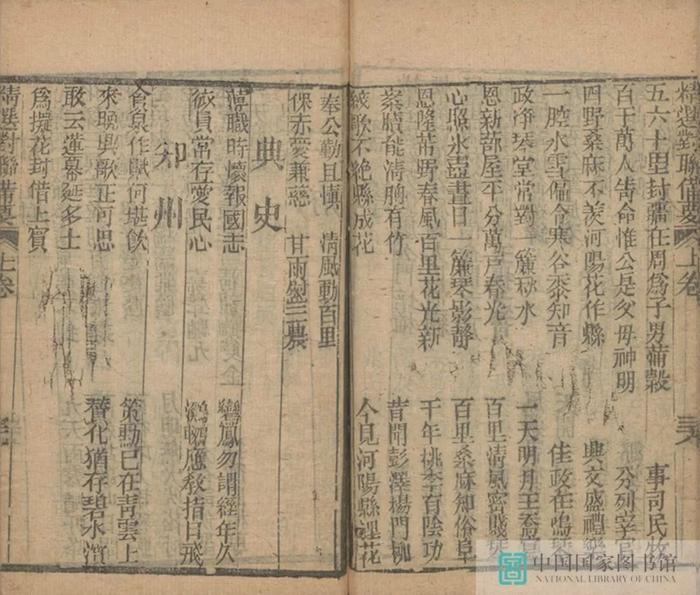 精選對聯備覽 上卷
五六十里封疆在周爲子男蒲縠 事司民牧
百千萬人寄命惟公是父母神明 分列宰官
四野桑麻不羨河陽花作縣 典文盛禮樂
一腔水雪偏令寒谷黍知音 佳政在鳴琴
政淨琴堂常對一簾秋水 一天明月王
恩新部屋平分萬戶春光 百里清風密賤琴
心照氷壺晝日一簾琴影靜 百里桑麻知俗阜
恩隆莆野春風百里花光新 千年桃李有陰功
案牘能清胸有竹 昔聞彭澤楊門柳
絃歌不絕縣成花 今見河陽縣裡花
奉公勤且慎 清風動百里
保赤愛兼慈 甘雨慰三農
典史
蒞職時懷報國志 鸞鳳勿謂經年久
微員常存愛民心 鸂鶒應教指日飛
知州
食泉作賦何堪飲 策勳已在靑雲上
來暮興歌正可思 替化猶存碧水濱
敢云蓮幕延多士
爲擁花封借上賓
精選對聯備覽 上卷
中国国家图书馆
NATIONAL LIBRARY OF CHINA